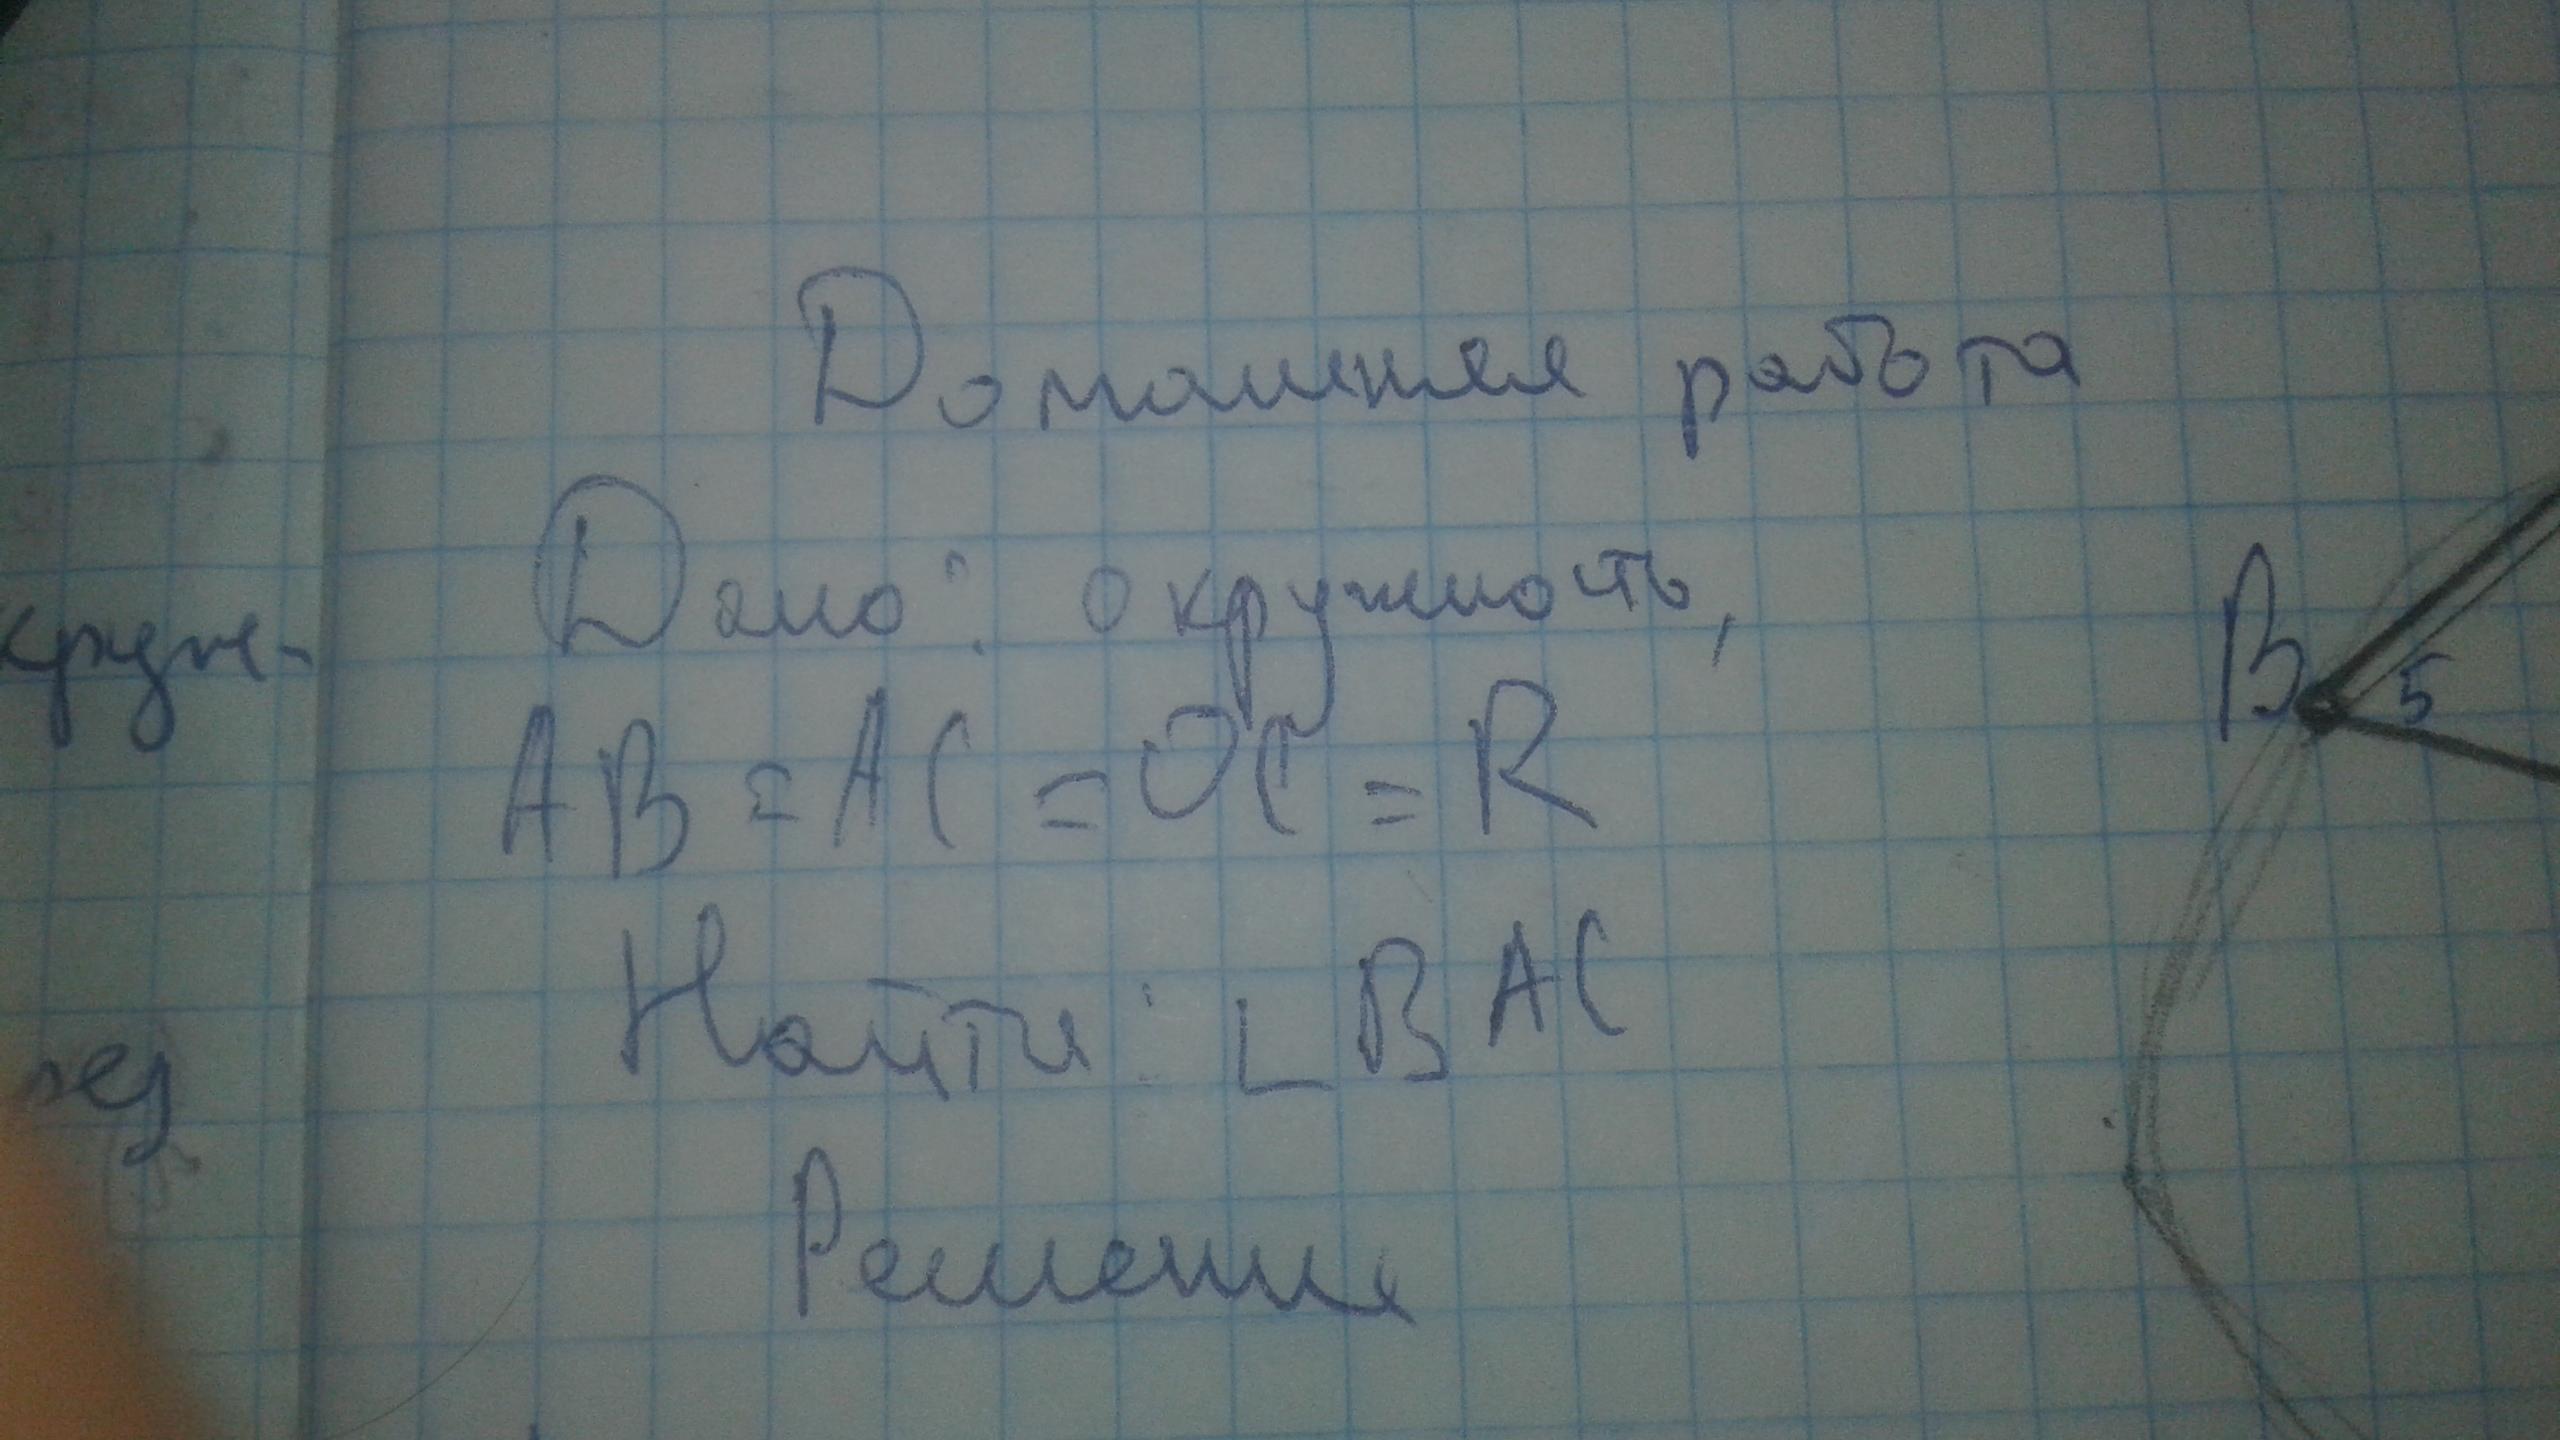 Домашняя работа
Дано: окружность,
AB = AC = OC = R
Найти: ∟BAC
Решение
B
5